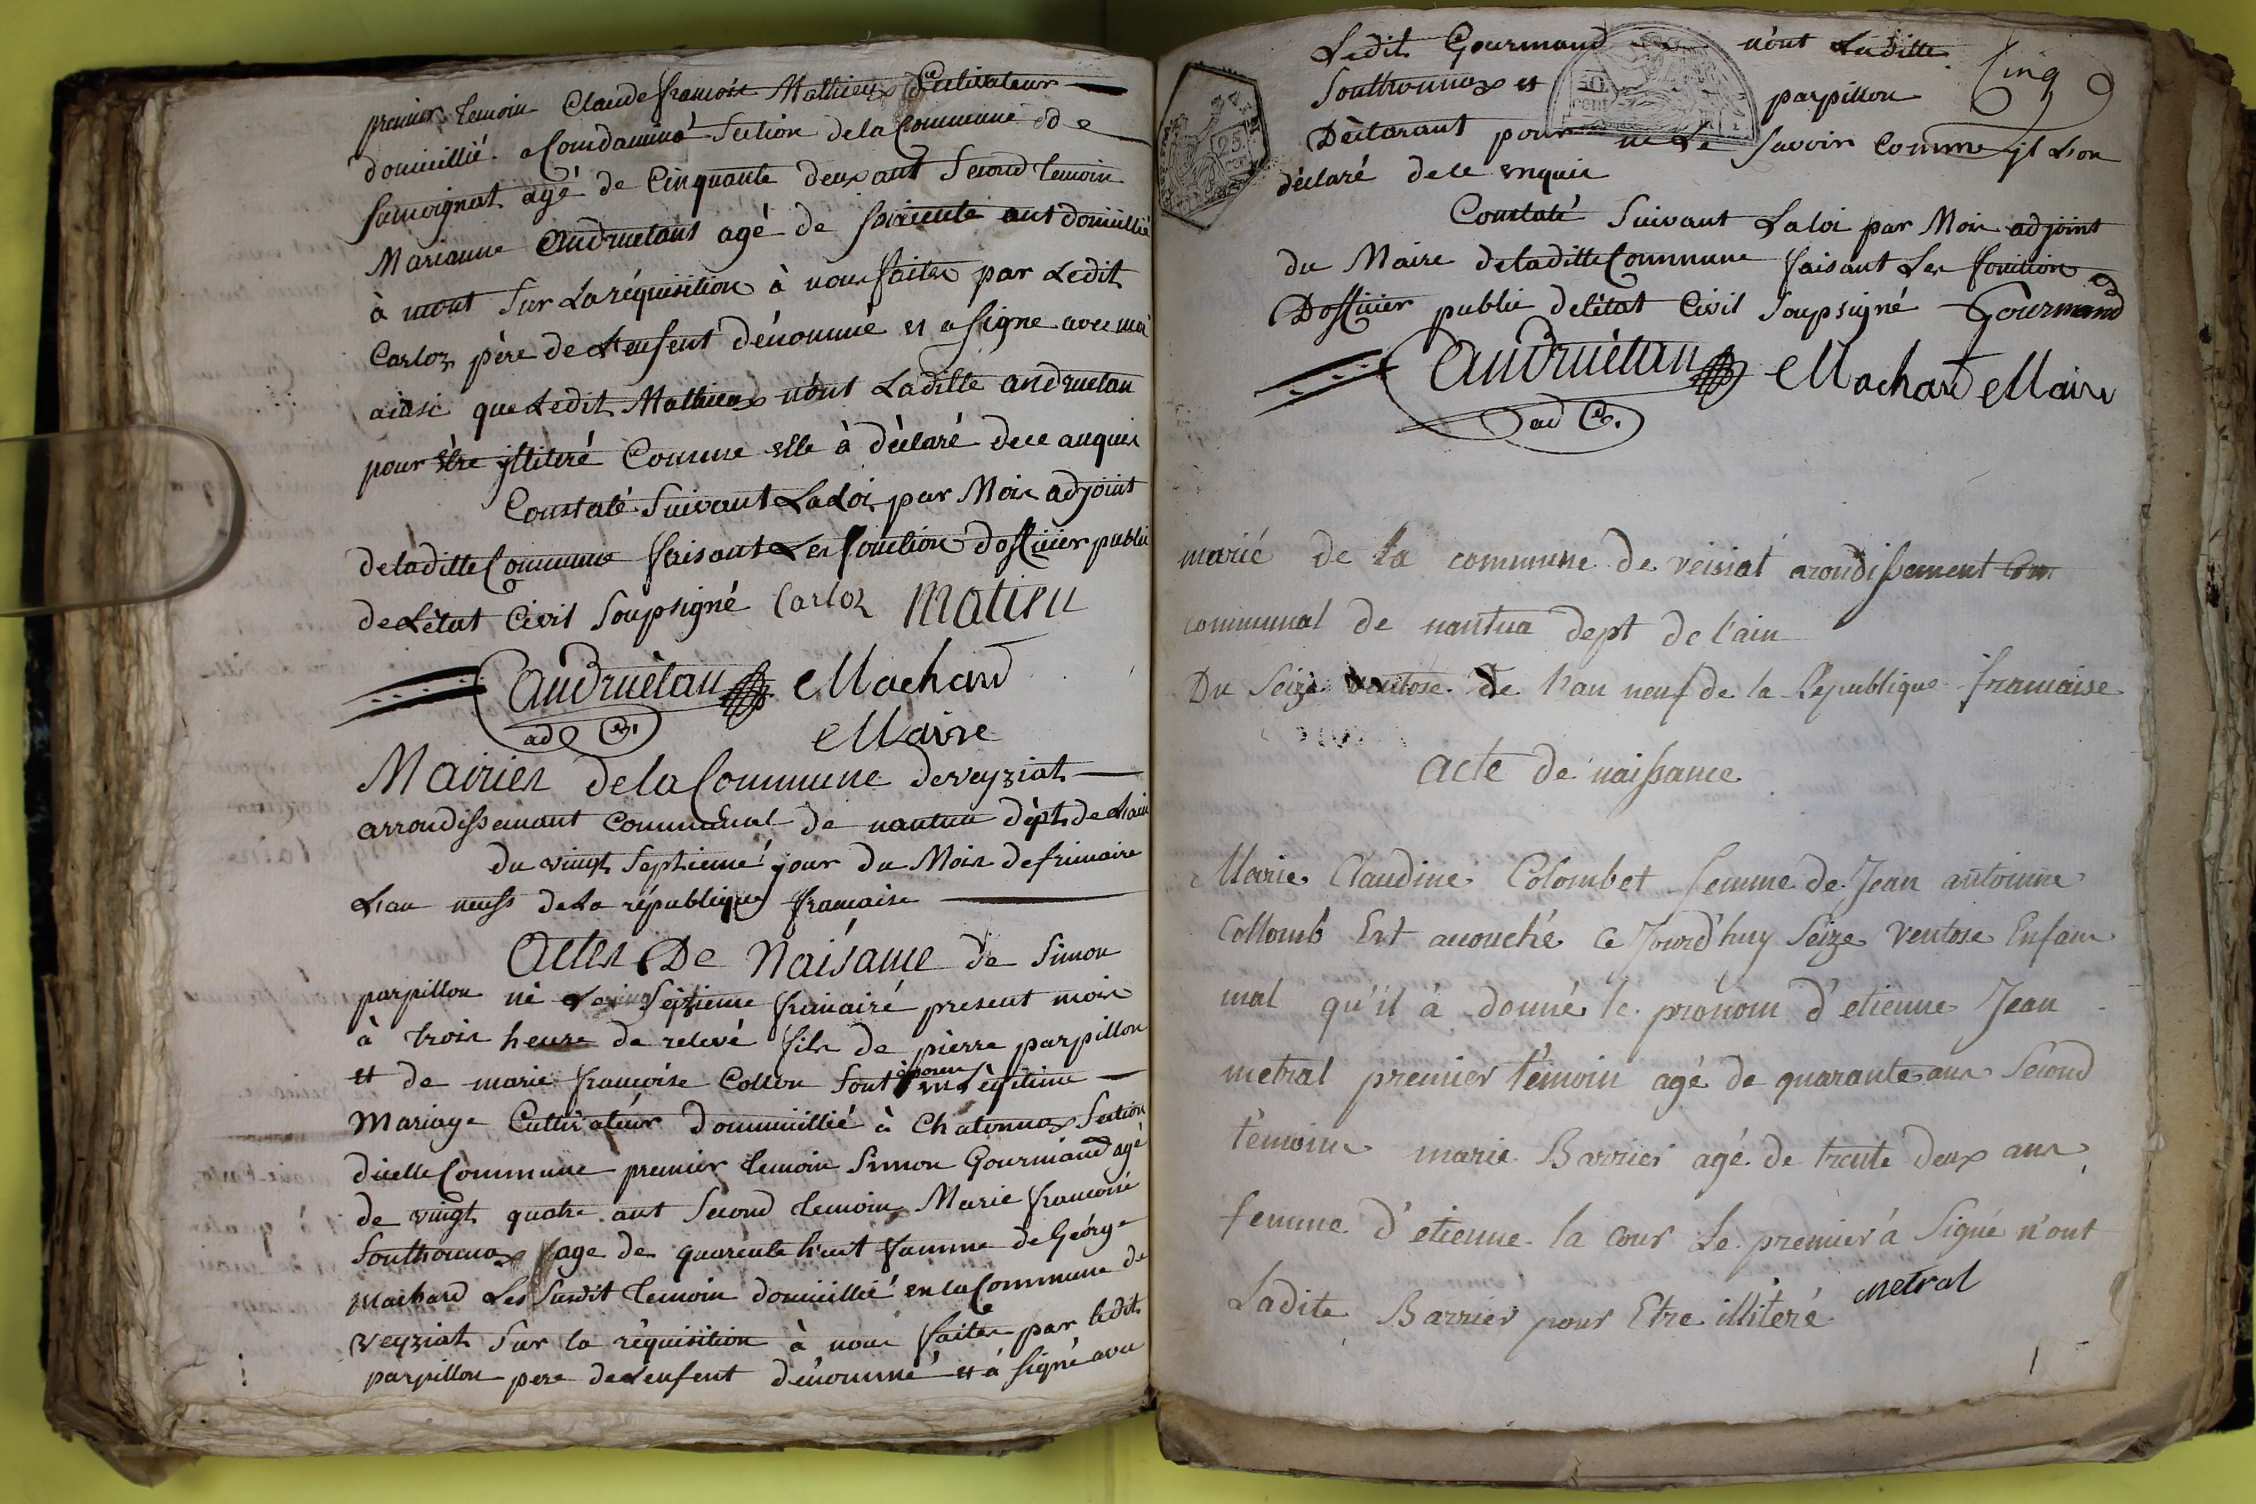 premier temoin Claude françois Mathieux Cultivateur
domicillié a Condamine Section de la Commune de
Samoignat agé de Cinquante deux ant Second temoin
Marianne Andruetans agé de soixente ant domicillié
à mont Sur La réquisition à nous faiter par Ledit
Carloz père de L'enfent dénommé et a signe avec moi
ainsi que Ledit Mathieux n'ont Laditte andruetan
pour être illiteré Comme elle à déclaré de ce anquis
Constaté Suivant La Loi par Moi adjoint
de laditte Commune faisant Les fonction d'officier public
de L'état Civil Soupsigné Carloz Matieu
Andruétan Machard
ad
Maire
Mairies de la Commune de veyziat
arrondissemant Communal de nantua dépt de L'ain
du vingt Septieme jour du Mois de frimaire
L'an neufs de La république française
Actes De Naisance de Simon
parpillon né Seizieme frimairé present mois
à trois heure de relevé fils de pierre parpillon
et de marie françoise Collon Sont époux en Légitime
Mariage Cultivateur Dommicillié à Chatonnax Section
dicelle Commune premier temoin Simon Gourmand agé
de vingt quatre ant Second temoin Marie françoise
Southonnax age de quarente huit famme de Géorge
Machard Les Susdit temoin domicillié en la Commune de
veyziat Sur la réquisition à nous faiter par ledit
parpillon pere de L'enfent dénommé et à signé avec
Ledit Gourmand n'ont Laditte
Cinq
Southonnax et parpillon
Déclarant pour ne Le Savoir Comme il L'on
déclaré de le enquis
50
25
Constaté Suivant La loi par Moi adjoint
du Maire de laditte Commune faisant Les fonction
D'officier public de l'état Civil Soupsigné Gourmand
Andruétan Machard Maire
ad
marié de la commune de veisiat arondissement Com
communal de nantua dept de l'ain
Du Seize ventose de l'an neuf de la Republique francaise
acte de naissance
Marie Claudine Colombet femme de Jean antoinne
Collomb Est acouché Ce Jourd'huy Seize Ventose Enfant
mal qu'il à donné le pronom d'etienne Jean
metral premier témoin agé de quarante ans Sécond
témoins marie Barrier agé de trente deux ans
femme d'etienne la cour Le premier à Signé n'ont
Ladite Barrier pour Etre illiteré Metral